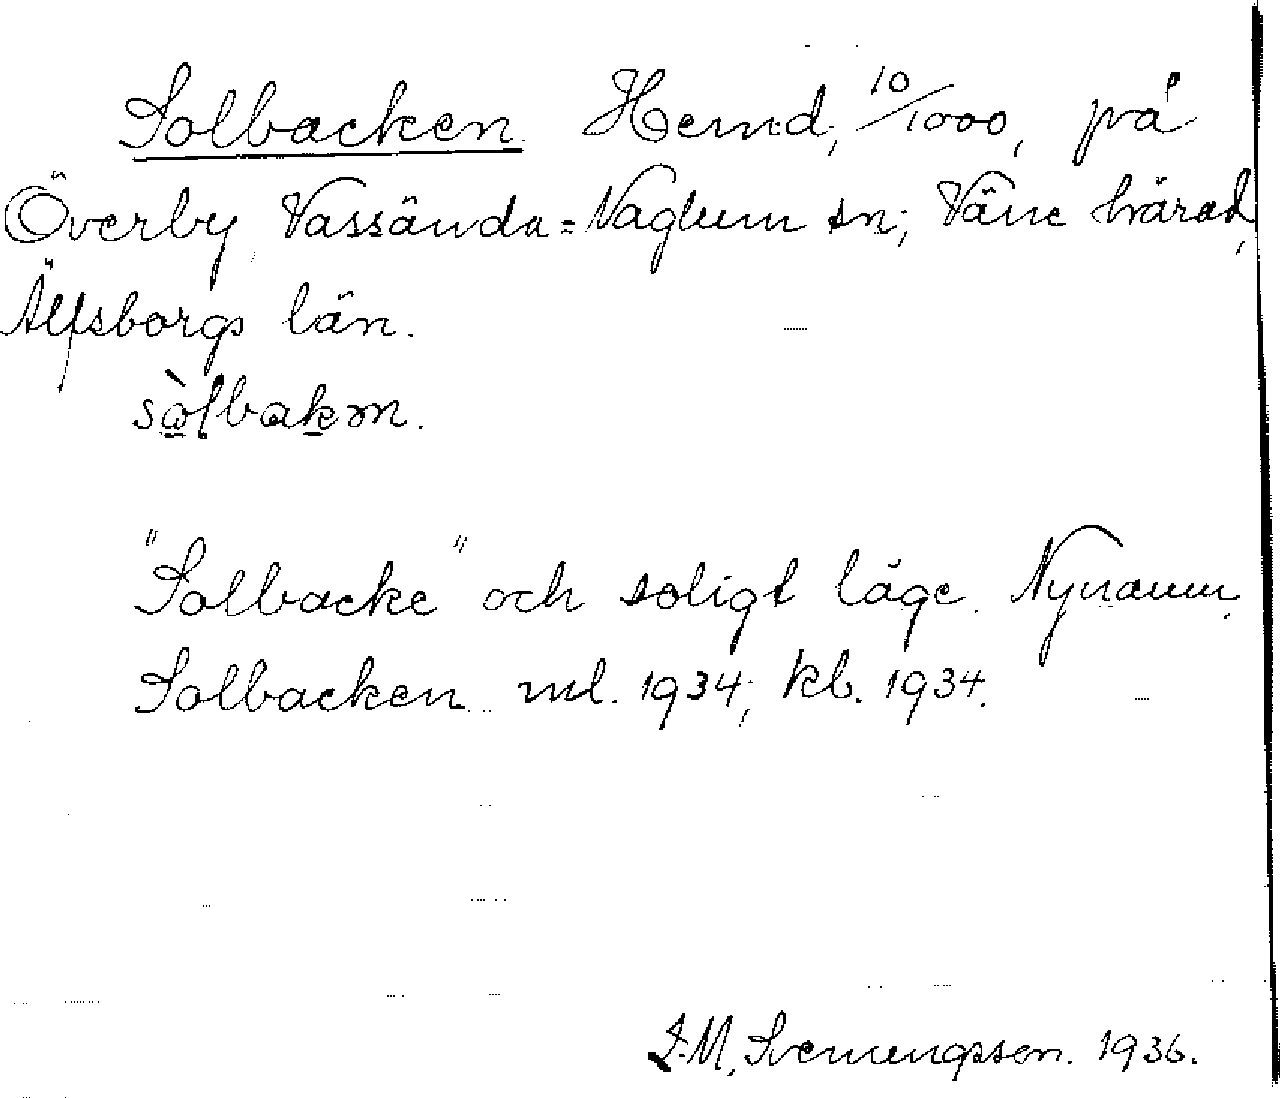 Solbacken Hemd, 10/1000, på
Överby, Vassända=Naglum sn; Väne härad,
Älfsborgs län.
sòlbakən.
"Solbacke" och soligt läge. Nynamn.
Solbacken ml. 1934; kb. 1934.
1936.